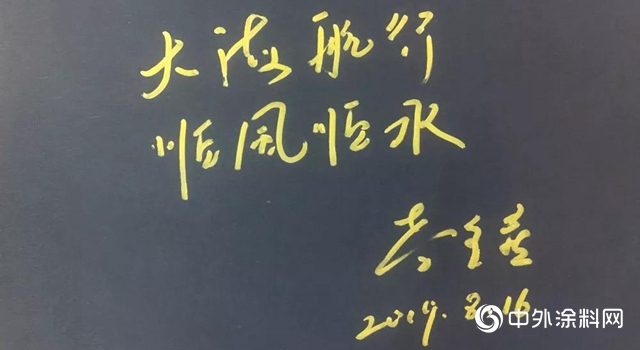 大海航行
顺风顺水
2019.8.16
中外涂料网